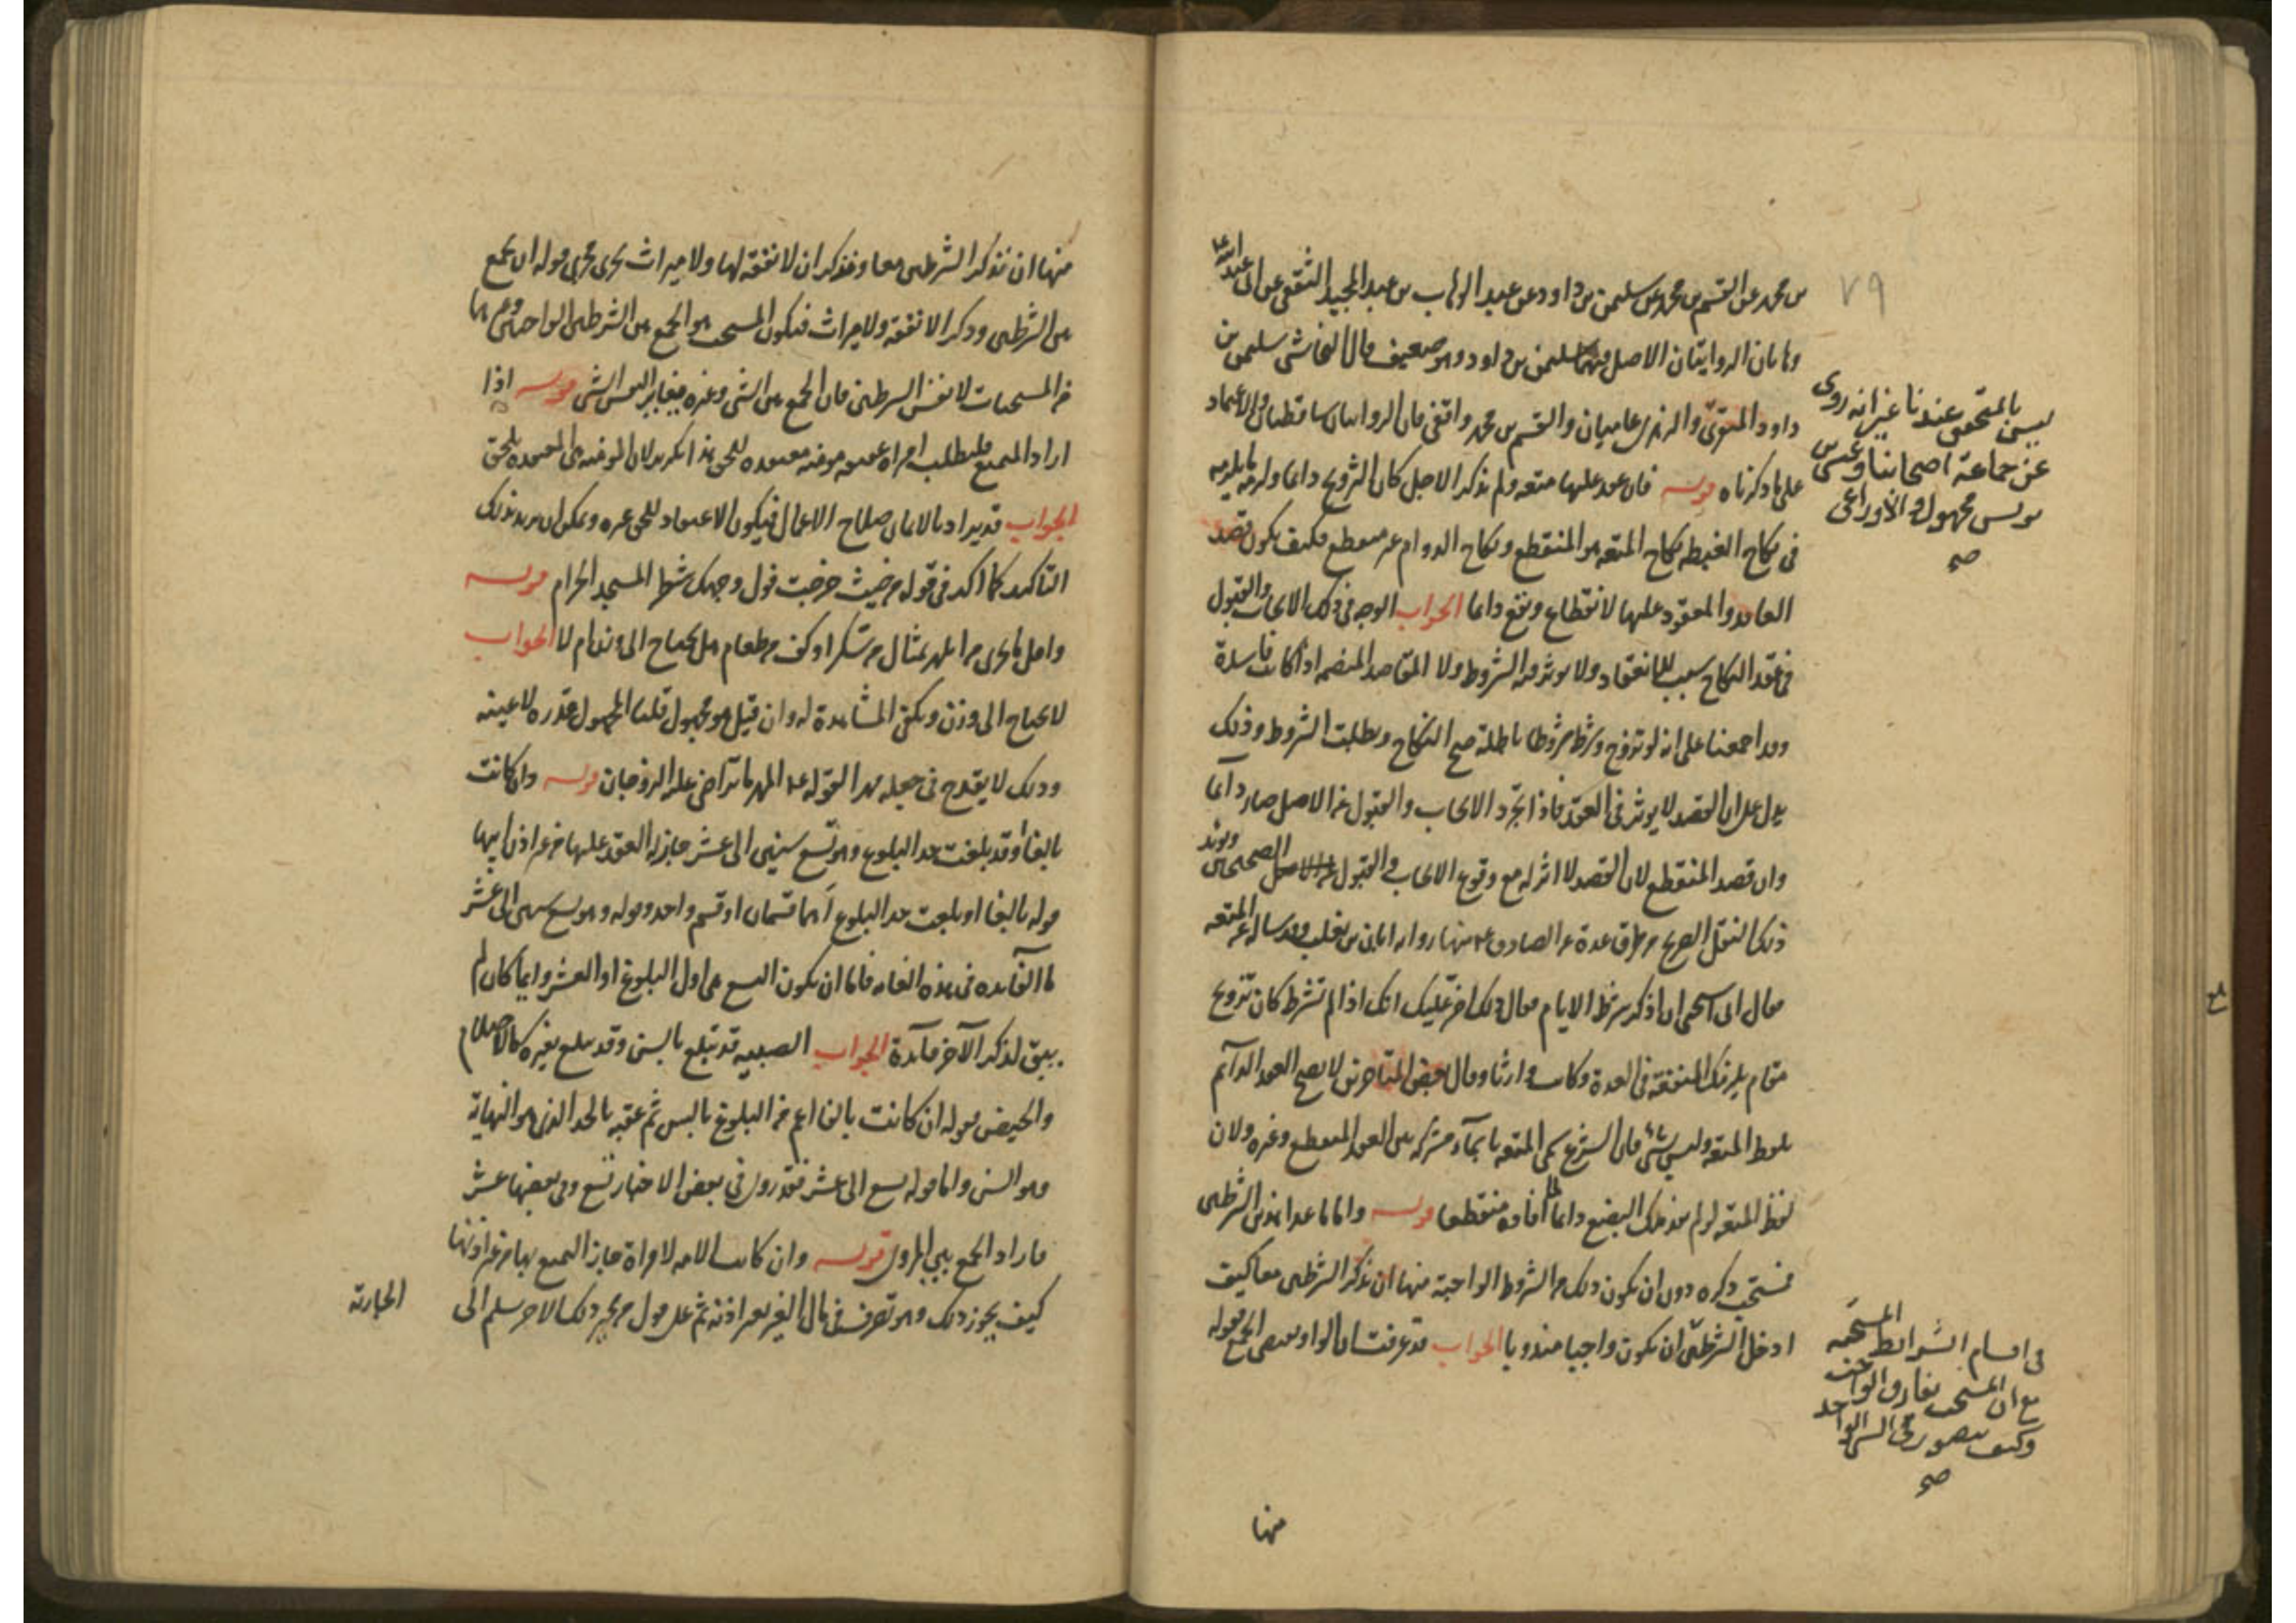 بن محمد عن القسم بن محمد عن سليمن بن داود عن عبد الوهاب بن عبد المجيد الثقفي عن ابى عبد الله ع
وهاتان الروايتان الاصل فيهما سليمن بن داود وهو ضعيف قال النجاشى سليمن بن
داود المنقرى والزهرى عاميان والقسم بن محمد واقفى فان الروايتان ساقطتان والاعتماد
على ما ذكرناه قوله فان عقد عليها متعه ولم يذكر الاجل كان التزويج دائما ولزمه ما يلزمه
فى نكاح الغبطه نكاح المتعه هو المنقطع ونكاح الدوام غير منقطع فكيف يكون قصد
العاقد والمعقود عليها الانقطاع ويقع دائما الجواب الوجه فى ذلك الايجاب والقبول
فى عقد النكاح سبب للانعقاد ولا يوثر فيه الشروط ولا المقاصد المنضمه اذا كانت فاسدة
وقد اجمعنا على انه لو تزوج وشرط شروطا باطلة صح النكاح وبطلت الشروط وذلك
يدل على ان القصد لا يوثر فى العقد فاذا تجرد الايجاب والقبول عن الاصل صار دآئما
وان قصد المنقطع لان القصد لا اثر له مع وقوع الايجاب والقبول الصحيحين ويويد
ذلك النقل الصريح من طرق عدة عن الصادق ع منها رواية ابان بن تغلب وقد ساله عن المتعه
فقال انى استحيى ان اذكر شرط الايام فقال ذلك اضر عليك انك اذا لم تشرط كان تزويج
مقام يلزمك النفقة فى العدة وكانت وارثا وقال بعض المتاخرين لا يصح العقد الدآئم
بلفظ المتعه وليس بشئ فان الشرع سمى المتعه باسمآء مشتركه بين العقد المنقطع وغيره ولان
لفظ المتعه لو لم يفد ملك البضع دائما لما افاده منقطعا قوله واما ما عدا هذين الشرطين
فمستحب ذكره دون ان يكون ذلك من الشروط الواجبة منها ان يذكر الشرطين معا كيف
ادخل الشرطين ان يكون واجبا مندوبا الجواب قد عرفت ان الواو يقتضى الجمع فقوله
منها
٧٩
ليس بالمتحقق عندنا غير انه روى
عن جماعة اصحابنا وعيسى بن
يونس مجهول والأوزاعى
صح
فى اقسام الشرائط المستحبه
مع ان المستحب يفارق الواجب
وكيف يتصور فى الشئ الواحد
صح
منها ان يذكر الشرطين معا ويذكر ان لا نفقة لها ولا ميراث يجرى مجرى قوله ان يجمع
بين الشرطين وذكر الا نفقة ولا ميراث فيكون المستحب هو الجمع بين الشرطين الواجبين وغيرهما
من المستحبات لا نفس الشرطين فان الجمع بين الشئ وغيره مغاير لنفس الشئ قوله اذا
اراد المتعه فليطلب امراة عفيفه مومنه معتقده للحق هذا تكرير لان المومنه هى المعتقده للحق
الجواب قد يراد بالايمان صلاح الاعمال فيكون الاعتقاد للحق غيره ويمكن ان يريد بذلك
التاكيد كما اكد فى قوله من حيث خرجت فول وجهك شطر المسجد الحرام قوله
واقل ما يجزى من المهر تمثال من سكر او كف من طعام هل يحتاج الى وزن ام لا الجواب
لا يحتاج الى وزن ويكفى المشاهدة له وان قيل هو مجهول قلنا المجهول قدره لا عينه
وذلك لا يقدح فى جعله مهرا لقوله ع المهر ما تراضى عليه الزوجان قوله وان كانت
بالغا وقد بلغت حد البلوغ وهو تسع سنين الى عشر جاز له العقد عليها من غير اذن ابيها
قوله بالغا او بلغت حد البلوغ أهما قسمان او قسم واحد وقوله وهو تسع سنين الى عشر
ما الفآئدة فى هذه الغايه فاما ان يكون التسع هى اول البلوغ او العشر وايما كان لم
يبق لذكر الآخر فآئدة الجواب الصبيه قد تبلغ بالسن وقد تبلغ بغيره كالاحتلام
والحيض فقوله ان كانت بالغا اعم من البلوغ بالسن ثم عقبه بالحد الذى هو النهاية
وهو السن واما قوله تسع الى عشر فقد روى فى بعض الاخبار تسع وفى بعضها عشر
فاراد الجمع بين المروى قوله وان كانت الامه لامراة جاز التمتع بها من غير اذنها
كيف يجوز ذلك وهو تصرف فى مال الغير بغير اذنه ثم على قول من يجيز ذلك لا حر سلم الى
الجارية